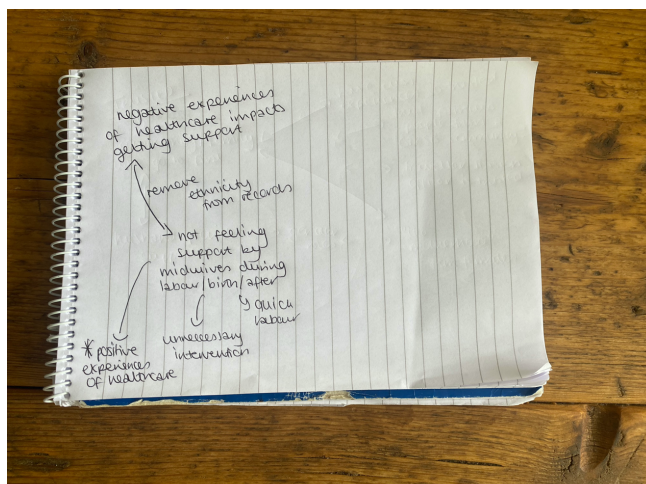 negative experiences
of healthcare impacts
getting support
remove
ethnicity
from records
not feeling
support by
midwives during
labour/birth/after
quick
labour
unnecessary
intervention
*positive
experiences
of healthcare